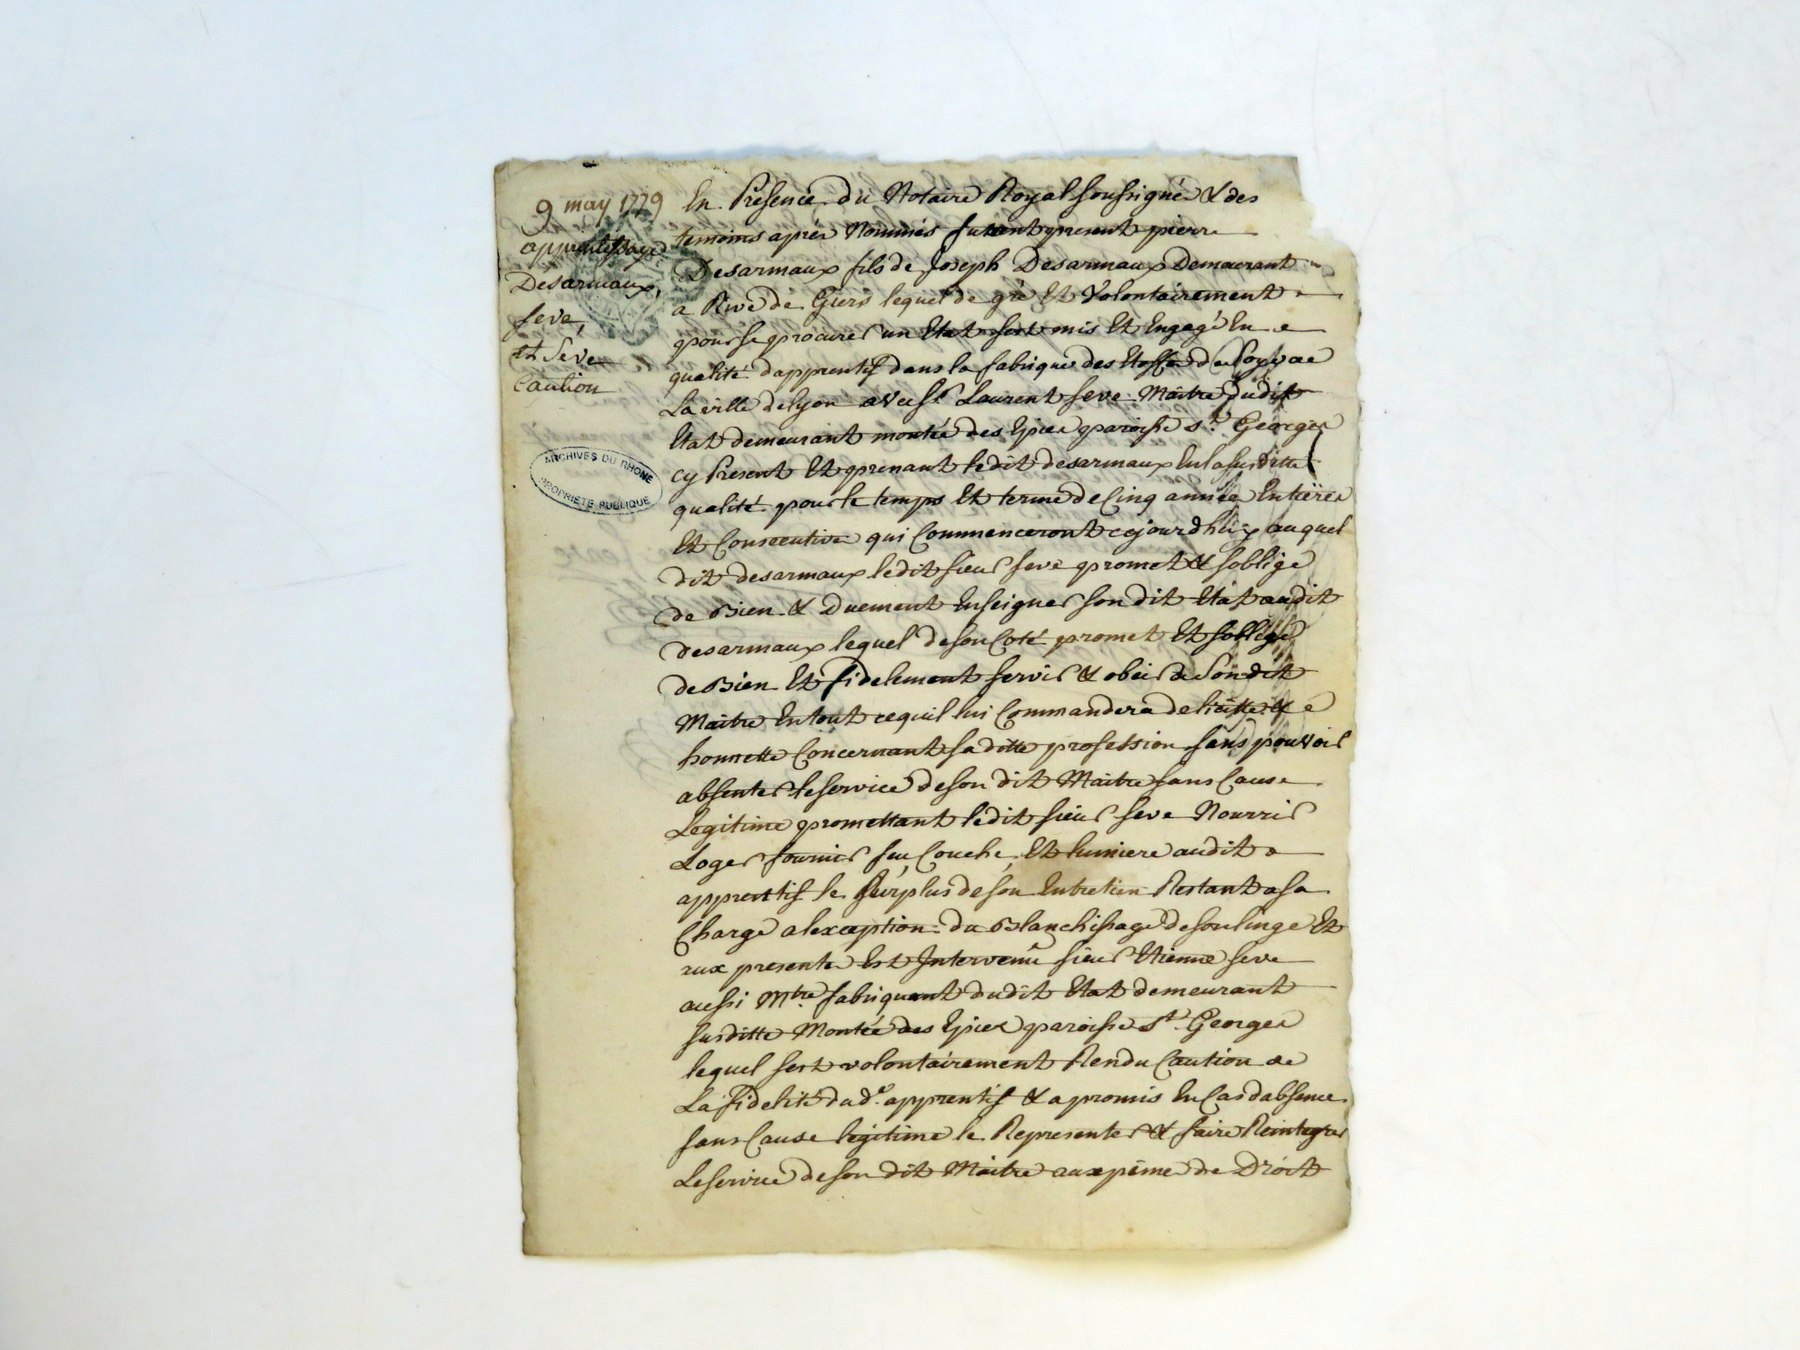 9 may 1779
apprentissage
Desarmaux,
seve,
et Seve
Caution
ARCHIVES DU RHONE
PROPRIETE PUBLIQUE
En Présence du Notaire Royal soussigné & des
temoins après Nommés furent present pierre
Desarmaux fils de Joseph Desarmaux Demeurant
a Rive de Giers lequel de gré Et Volontairement
pour se procurer un Etat sest mis Et Engagé En
qualité dapprentif dans la fabrique des Etoffes de Soye de
La ville de lyon avec sr. Laurent seve Maitre dudit
Etat demeurant montée des Epies paroisse st. Georges
cy Présent Et prenant ledit desarmaux En la susditte
qualité pour le temps Et terme de Cinq années Entières
Et Consecutives qui Commenceront cejourdhui auquel
dit desarmaux ledit sieur seve promet & soblige
de Bien & Duement Enseigner son dit Etat audit
desarmaux lequel de son Coté promet Et soblige
de Bien Et fidelement servir & obeir a Sondit
Maitre En tout ce quil lui Commandera de licitte &
honnette Concernant sa ditte profession sans pouvoir
absenter le service de son dit Maitre sans Cause
Legitime promettant ledit sieur seve Nourrir
Loger fournir feu, Couche, Et lumiere audit
apprentif le surplus de son Entretien Restant a sa
Charge a lexception du Blanchissage de son linge Et
aux presentes Est Intervenu sieur Etienne seve
aussi Mtre. fabriquant dudit Etat demeurant
susditte Montée des Epies paroisse st. Georges
lequel sest volontairement Rendu Caution de
La fidelité dud. apprentif & a promis En Cas dabsence
sans Cause legitime le Representer & faire Reintegrer
Le service de son dit Maitre aux peine de Droit